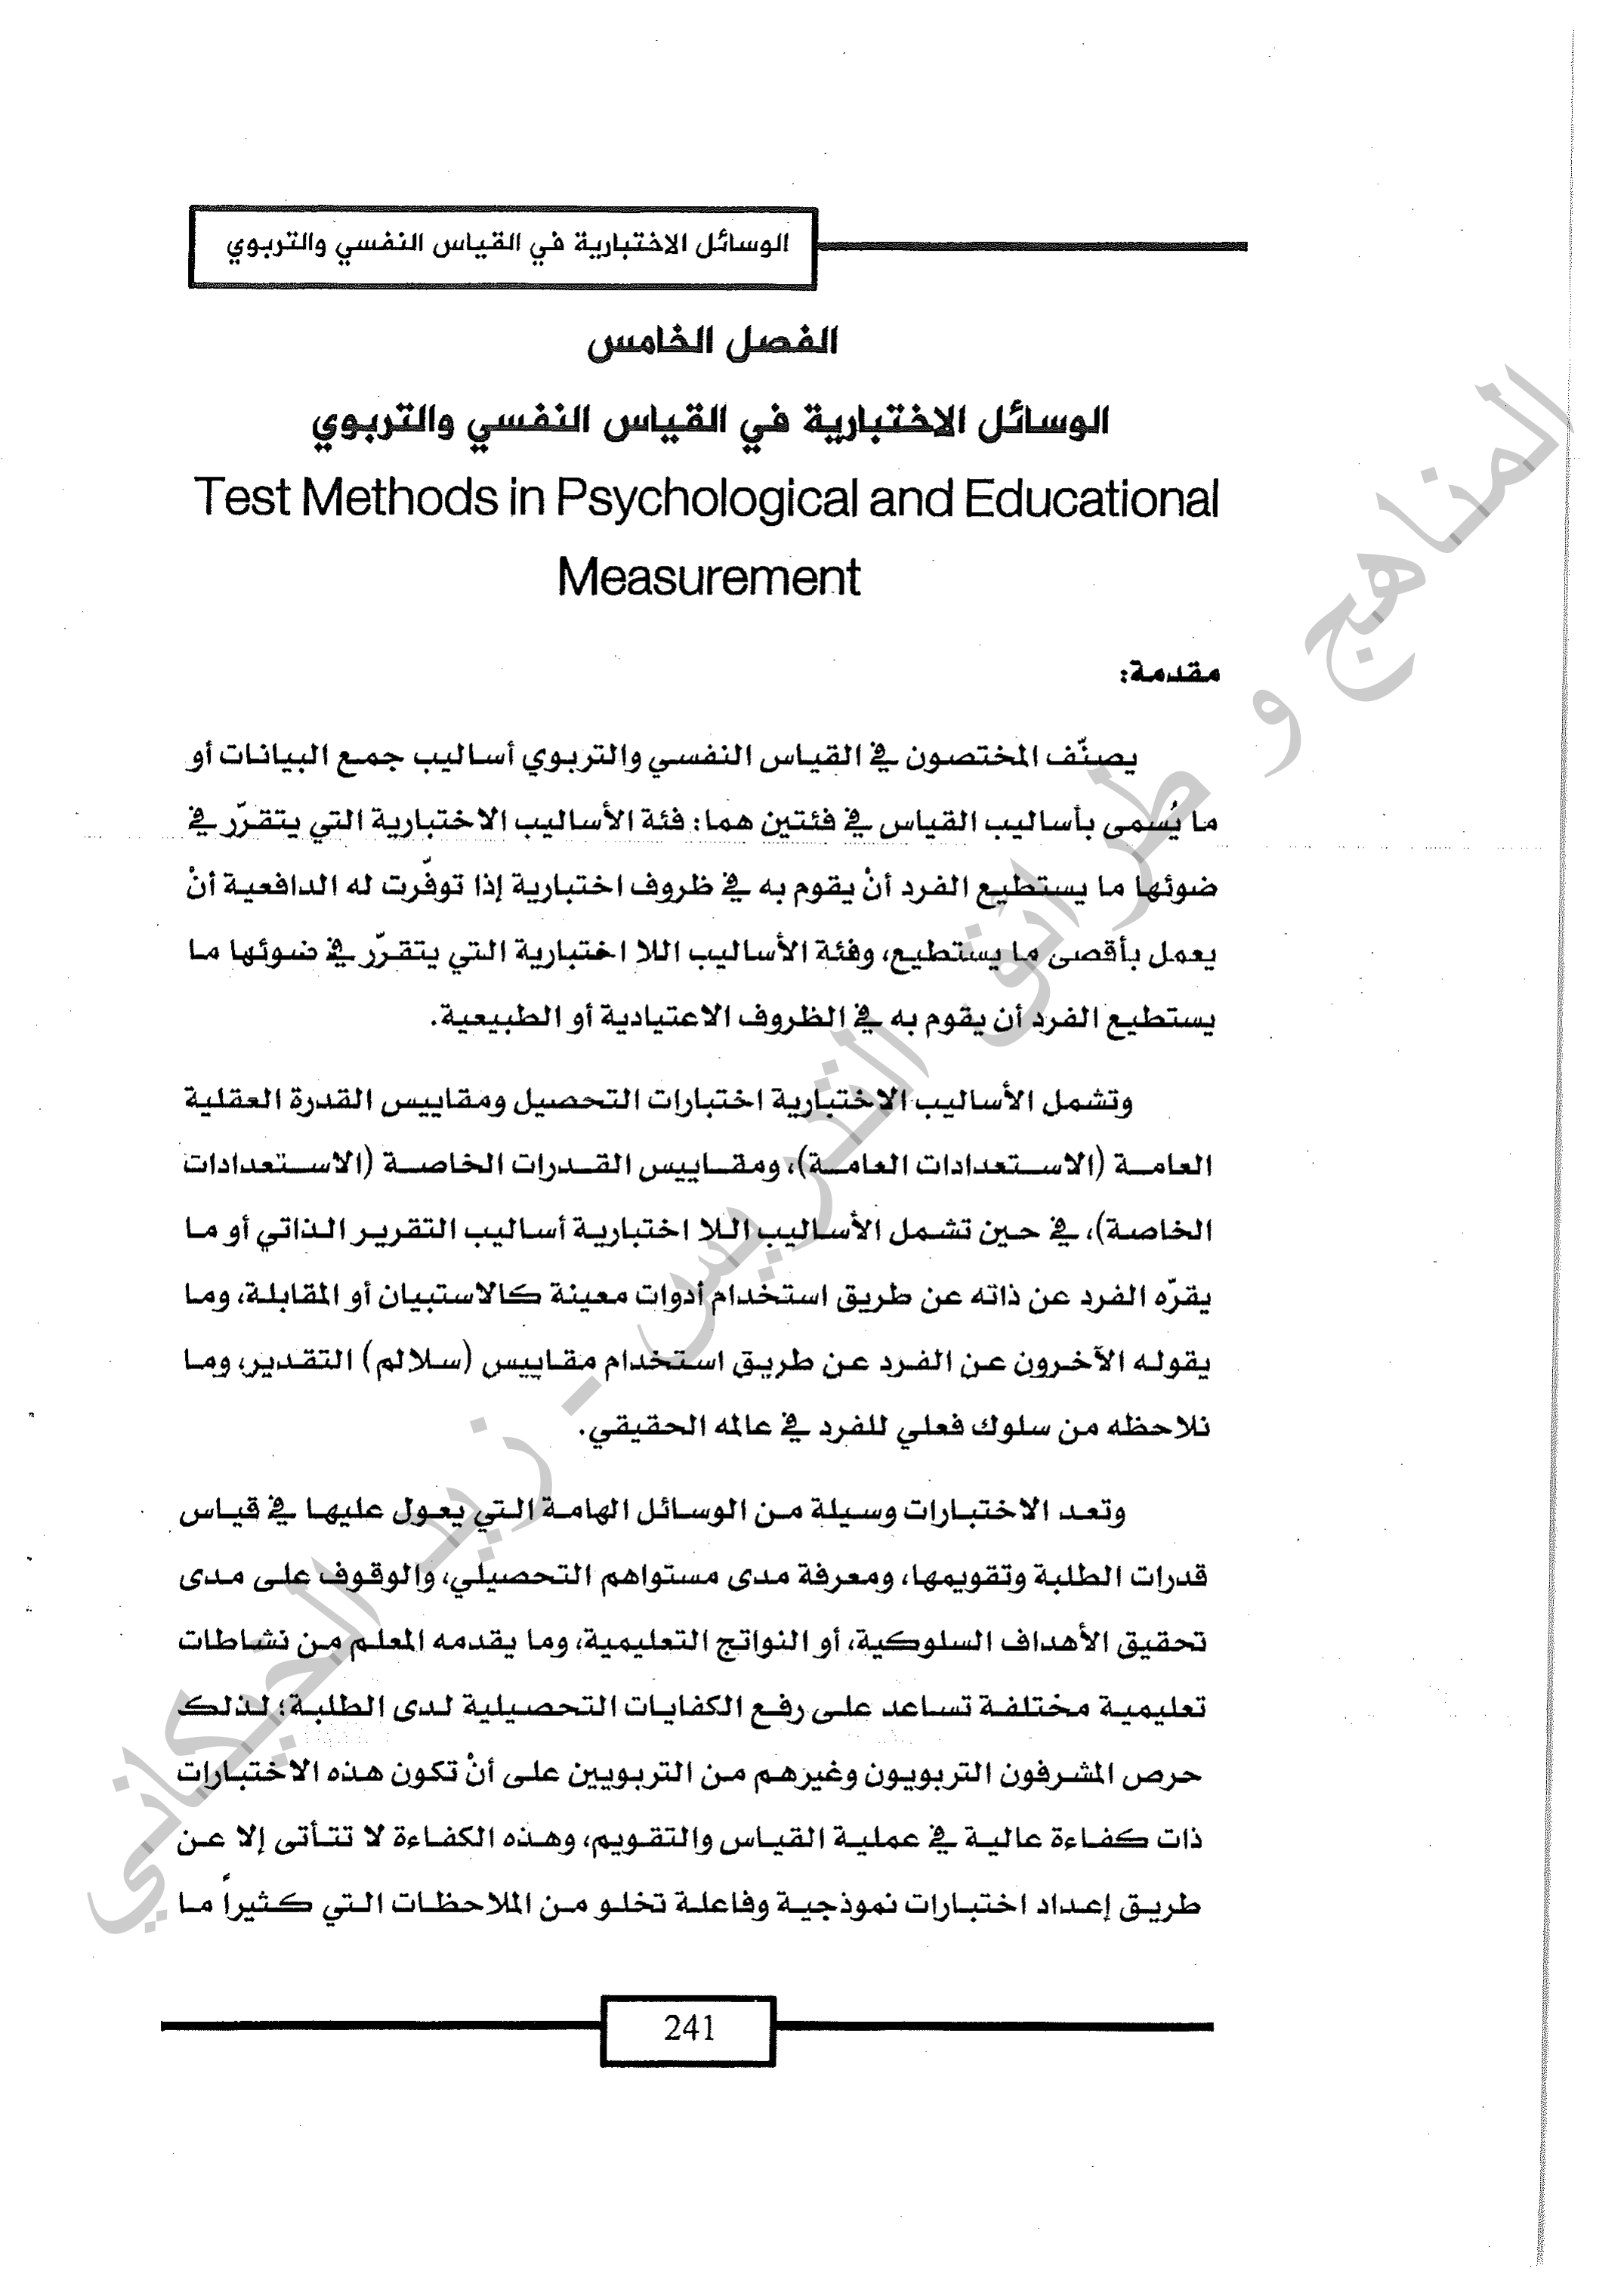 الوسائل الاختبارية في القياس النفسي والتربوي
الفصل الخامس
الوسائل الاختبارية في القياس النفسي والتربوي
Test Methods in Psychological and Educational
Measurement
مقدمة:
يصنّف المختصون في القياس النفسي والتربوي أساليب جمع البيانات أو
ما يُسمى بأساليب القياس في فئتين هما: فئة الأساليب الاختبارية التي يتقرّر في
ضوئها ما يستطيع الفرد أنْ يقوم به في ظروف اختبارية إذا توفّرت له الدافعية أنْ
يعمل بأقصى ما يستطيع، وفئة الأساليب اللا اختبارية التي يتقرّر في ضوئها ما
يستطيع الفرد أن يقوم به في الظروف الاعتيادية أو الطبيعية.
وتشمل الأساليب الاختبارية اختبارات التحصيل ومقاييس القدرة العقلية
العامة (الاستعدادات العامة)، ومقاييس القدرات الخاصة (الاستعدادات
الخاصة)، في حين تشمل الأساليب اللا اختبارية أساليب التقرير الذاتي أو ما
يقرّه الفرد عن ذاته عن طريق استخدام أدوات معينة كالاستبيان أو المقابلة، وما
يقوله الآخرون عن الفرد عن طريق استخدام مقاييس (سلالم) التقدير، وما
نلاحظه من سلوك فعلي للفرد في عالمه الحقيقي.
وتعد الاختبارات وسيلة من الوسائل الهامة التي يعول عليها في قياس
قدرات الطلبة وتقويمها، ومعرفة مدى مستواهم التحصيلي، والوقوف على مدى
تحقيق الأهداف السلوكية، أو النواتج التعليمية، وما يقدمه المعلم من نشاطات
تعليمية مختلفة تساعد على رفع الكفايات التحصيلية لدى الطلبة؛ لذلك
حرص المشرفون التربويون وغيرهم من التربويين على أنْ تكون هذه الاختبارات
ذات كفاءة عالية في عملية القياس والتقويم، وهذه الكفاءة لا تتأتى إلا عن
طريق إعداد اختبارات نموذجية وفاعلة تخلو من الملاحظات التي كثيراً ما
241
المناهج و طرائق التدريس - زيد الحيكاني